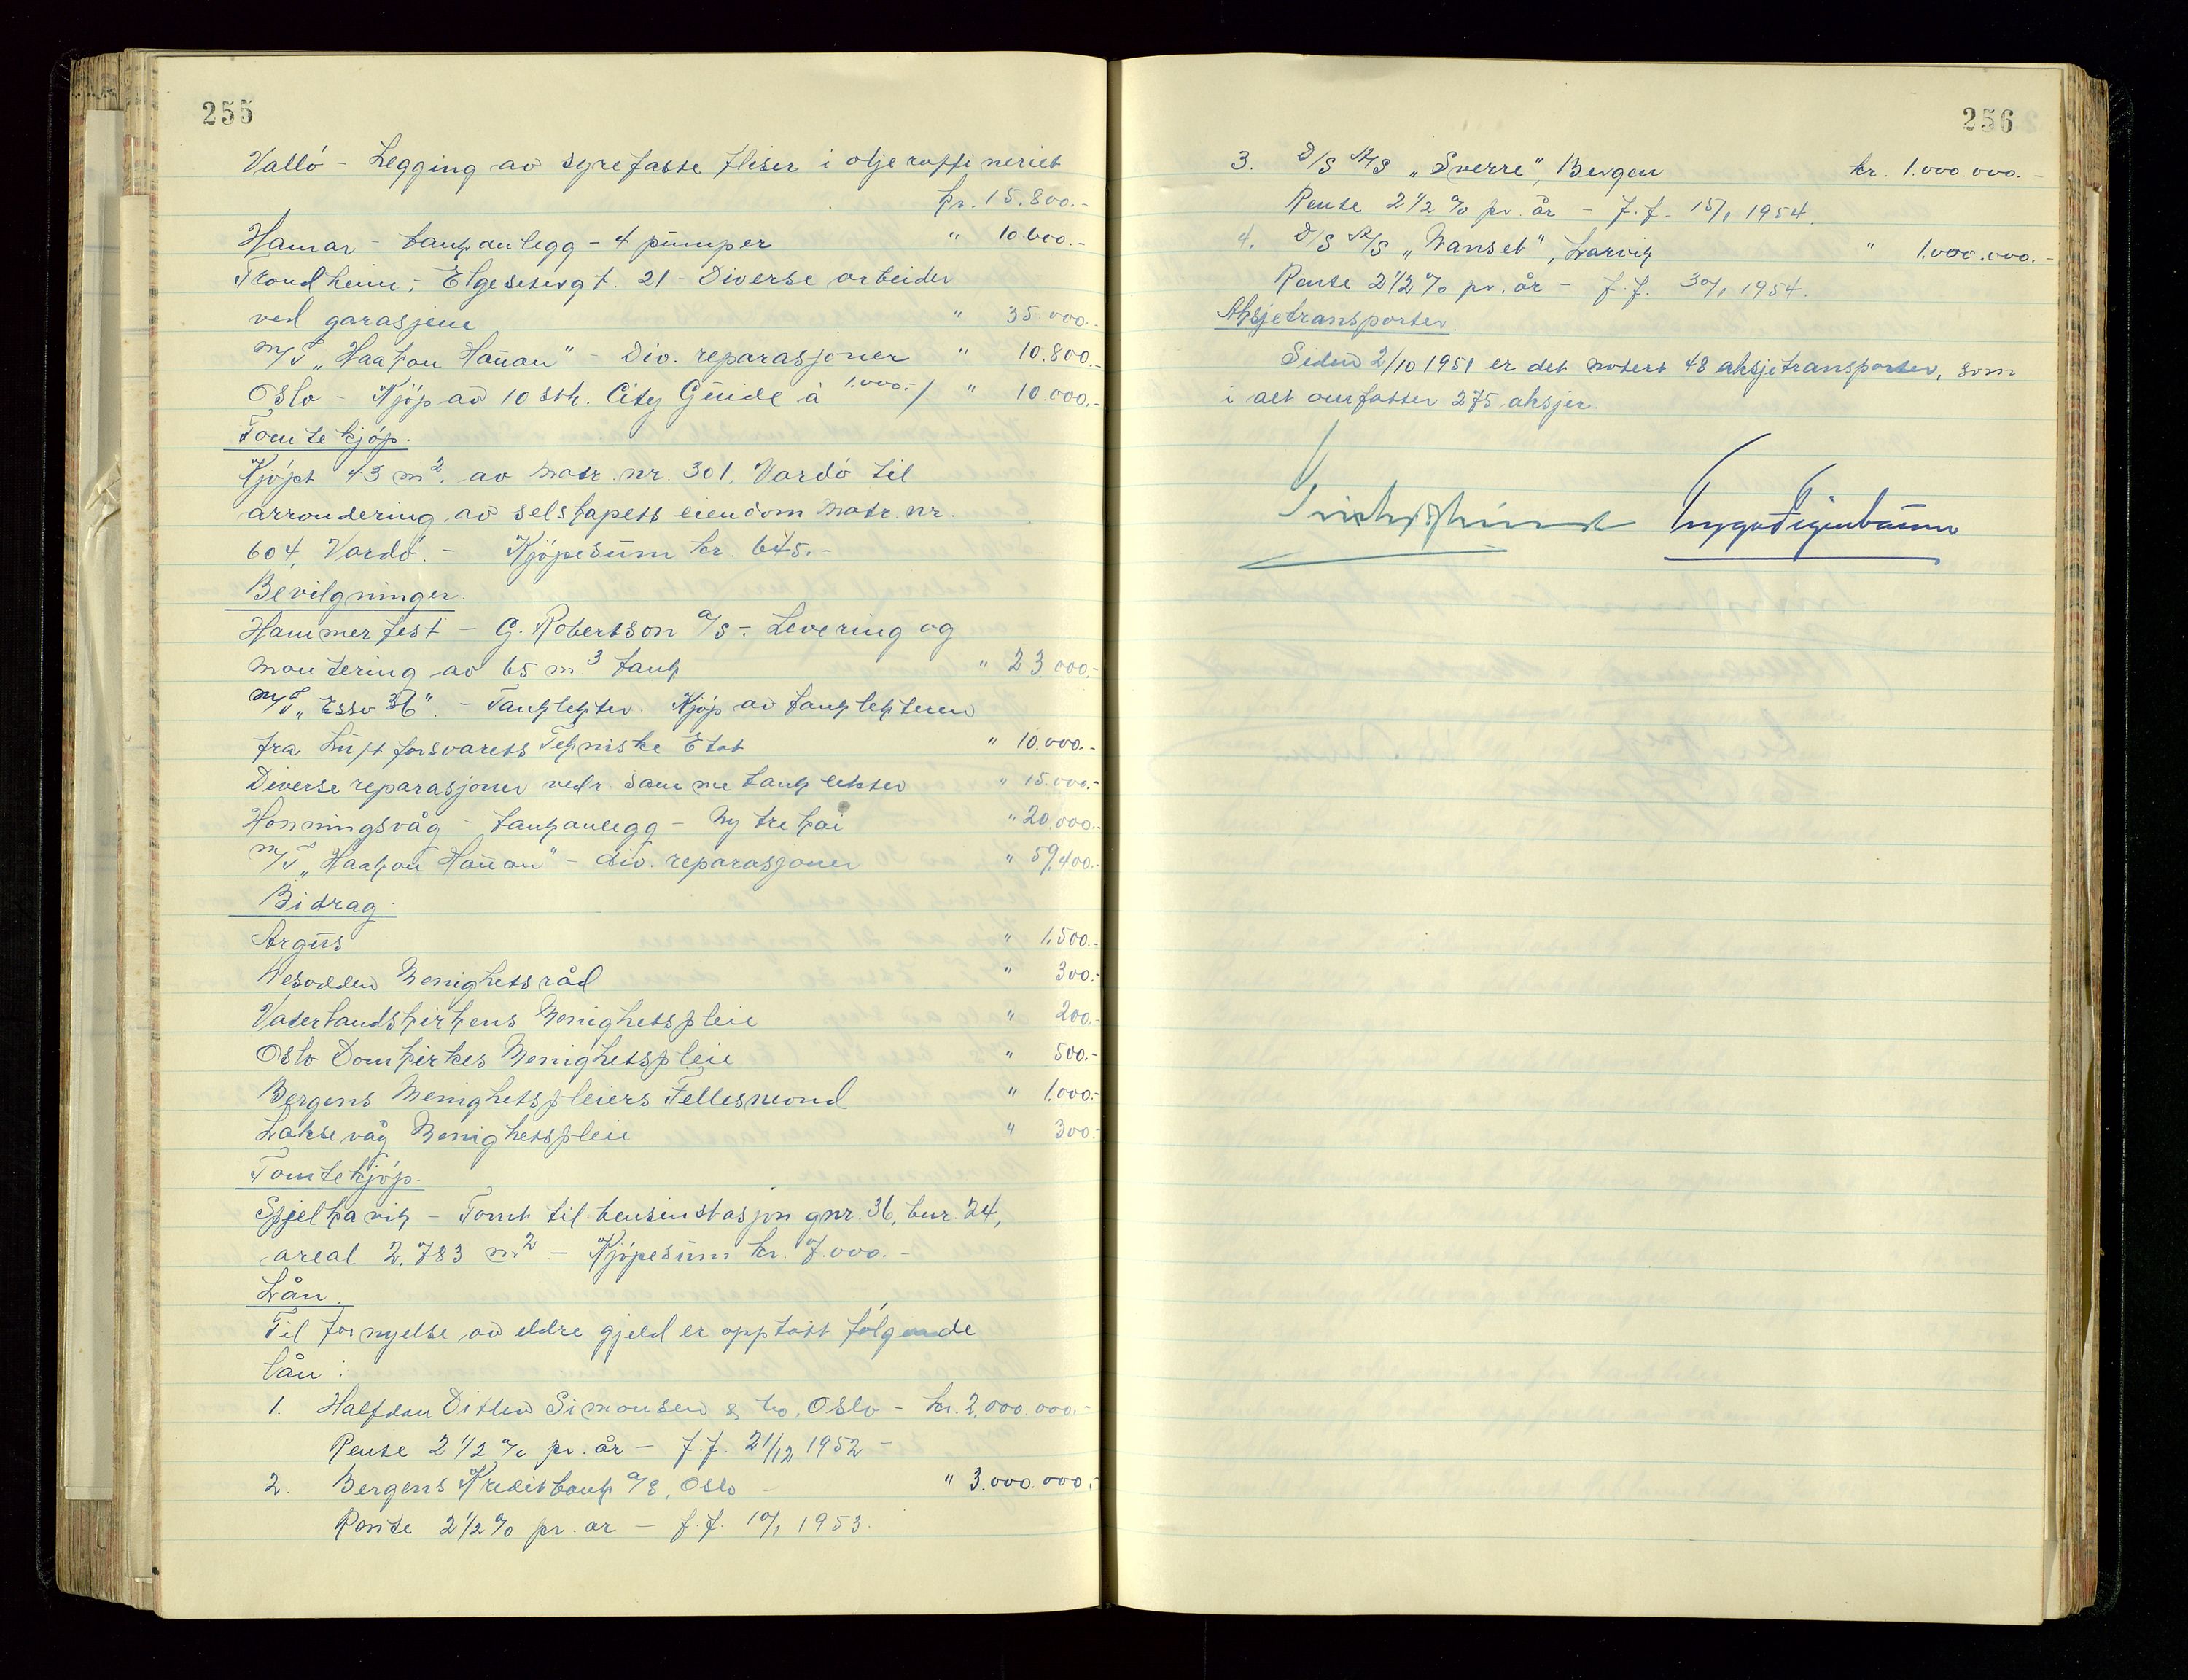 255
Vallö - Legging av syrefaste fliser i oljeraffineriet
kr. 15.800.-
Hamar - tankanlegg - 4 pumper " 10.600.-
Trondheim, - Elgesetergt. 21 - Diverse arbeider
ved garasjene " 35.000.-
M/T „Haakon Hauan" - Div. reparasjoner " 10.800.-
Oslo - Kjöp av 10 stk. City Guide à 1.000.-/ " 10.000.-
Tomtekjöp.
Kjöpt 43 m². av matr. nr. 301, Vardö til
arrondering av selskapets eiendom matr. nr.
604, Vardö. - Kjöpesum kr. 645.-
Bevilgninger.
Hammerfest - G. Robertson A/S - Levering og
montering av 65 m³ tank " 23.000.-
M/T „Esso 36". - Tanklekter. Kjöp av tanklekteren
fra Luftforsvarets Tekniske Etat " 10.000.-
Diverse reparasjoner vedr. samme tanklekter " 15.000.-
Honningsvåg - tankanlegg - Ny trekai " 20.000.-
M/T „Haakon Hauan" - div. reparasjoner " 59.400.-
Bidrag.
Argus " 1.500.-
Nesodden Menighetsråd " 300.-
Vaterlandskirkens Menighetspleie " 200.-
Oslo Domkirkes Menighetspleie " 500.-
Bergens Menighetspleiers Fellesnevnd " 1.000.-
Laksevåg Menighetspleie " 300.-
Tomtekjöp.
Spjelkavik - Tomt til bensinstasjon gnr. 36, bnr. 24,
areal 2.783 m² - Kjöpesum kr. 7.000.-
Lån.
Til fornyelse av eldre gjeld er opptatt fölgende
lån:
1. Halfdan Ditlev Simonsen & Co, Oslo - kr. 2.000.000.-
Rente 2 1/2 % pr. år - f.f. 21/12 1952 -
2. Bergens Kreditbank A/S, Oslo - " 3.000.000.-
Rente 2 1/2 % pr. år - f.f. 10/1 1953.
256
3. D/S A/S „Sverre", Bergen kr. 1.000.000.-
Rente 2 1/2 % pr. år - f.f. 15/1 1954.
4. D/S A/S „Nanset", Larvik " 1.000.000.-
Rente 2 1/2 % pr. år - f.f. 30/1 1954.
Aksjetransporter.
Siden 2/10 1951 er det notert 48 aksjetransporter, som
i alt omfatter 275 aksjer.